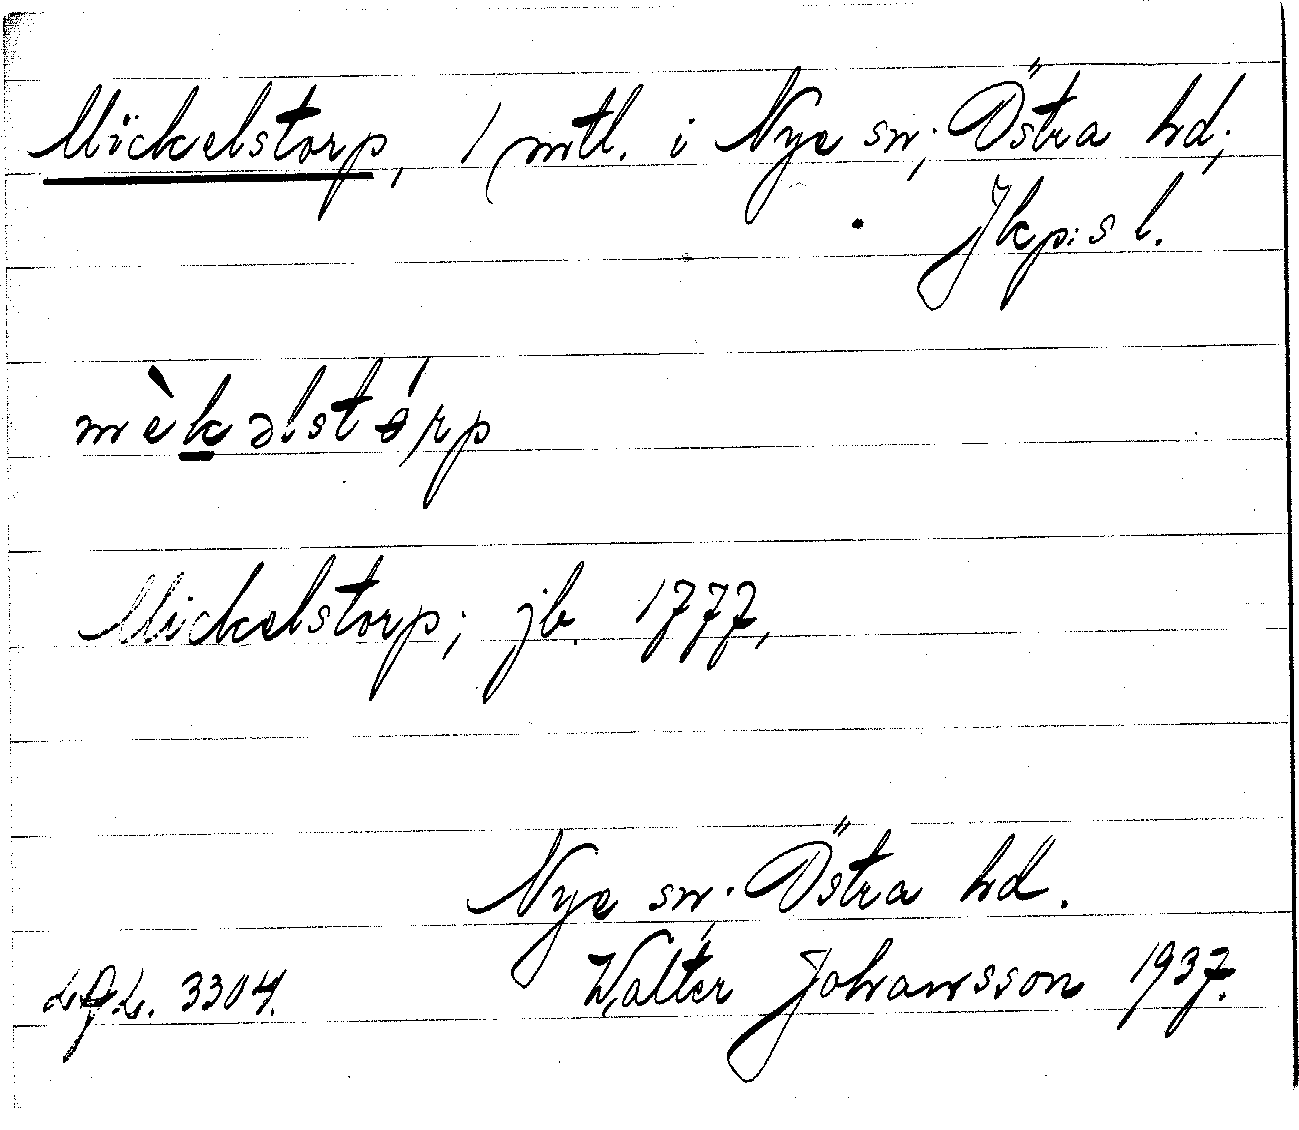 Mickelstorp, 1 mtl. i Nye sn; Östra hd;
Jkp:s l.
mèkəlstórp
Mickelstorp; jb. 1777,
Nye sn; Östra hd.
Walter Johansson 1937.
3304.